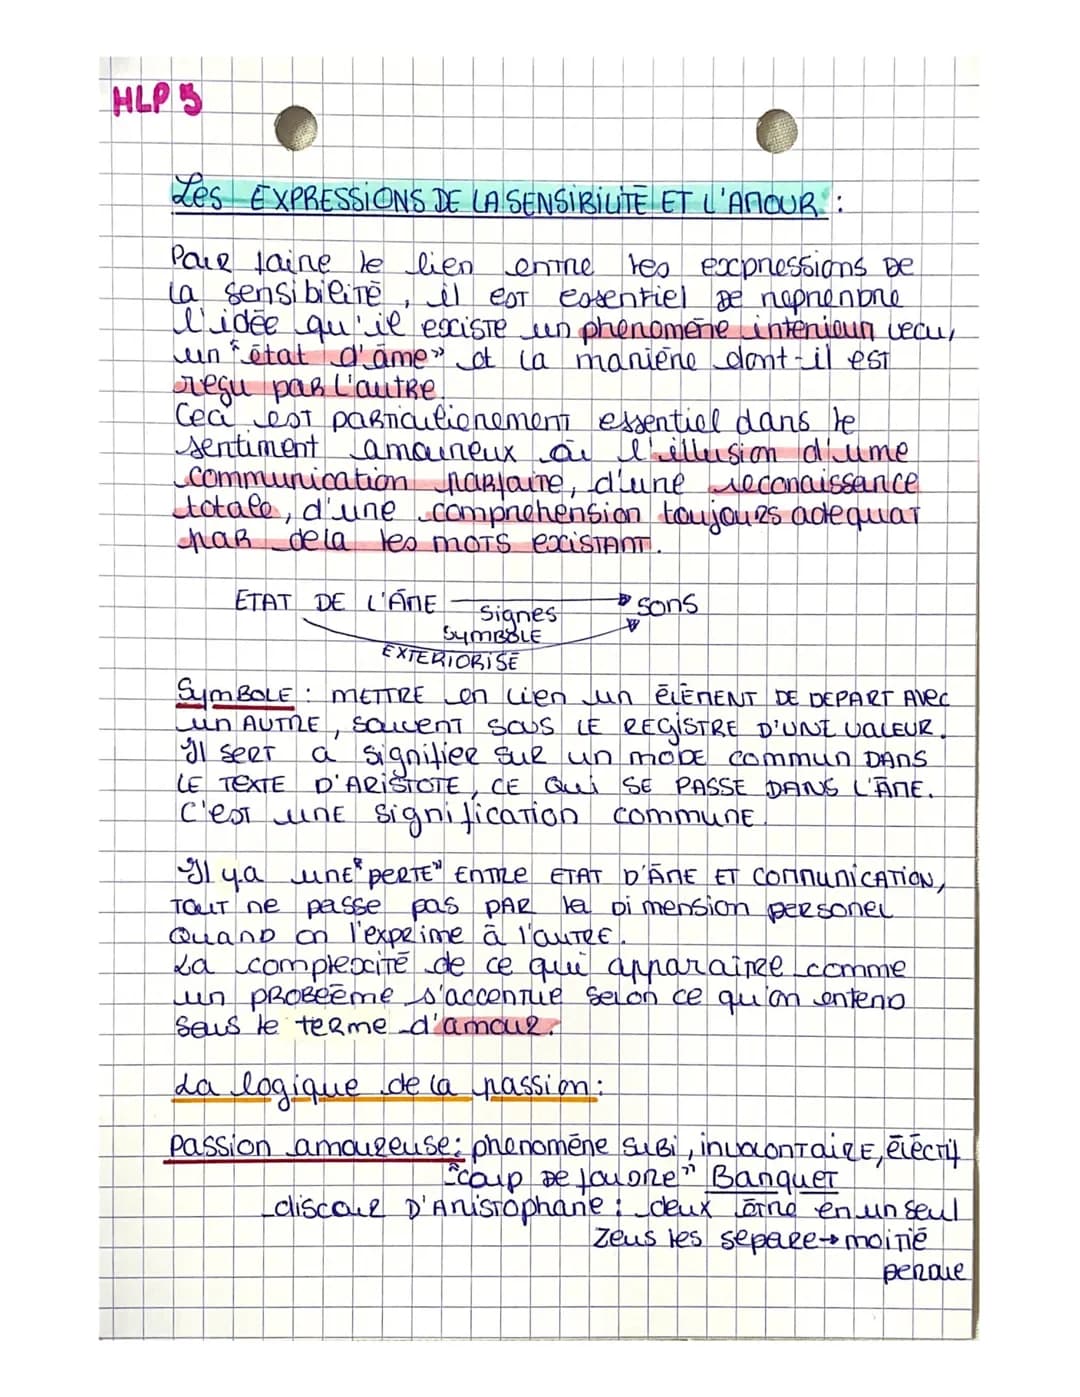 HLP 5
Les EXPRESSIONS DE LA SENSIBILITÉ ET L'AMOUR :
Pour faire le lien entre les expressions de
la sensibilité, il est essentiel de reprendre
l'idée qu'il existe un phenomène interieur vecu,
un "état d'âme" et la manière dont-il est
reçu par l'autre.
Ceci est particulierement essentiel dans le
sentiment amoureux où l'illusion d'une
communication parfaire, d'une reconaissance
totale, d'une comprehension toujours adequat
par dela les mots existant.
ETAT DE L'ÂME
signes
SYMBOLE
EXTERIORISÉ
sons
SYMBOLE : METTRE en lien un ÉLÉMENT DE DEPART AVEC
un AUTRE, souvent sous LE REGISTRE D'UNE VALEUR.
Il sert à signifier sur un mode commun DANS
LE TEXTE D'ARISTOTE, CE Qui SE PASSE DANS L'ÂME.
C'est une signification commune.
Il y a une "PERTE" ENTRE ETAT D'ÂME ET COMMUNICATION,
TOUT ne passe pas PAR la dimension personel
Quand on l'exprime à l'autre.
La complexité de ce qui apparairee comme
un problème s'accentue selon ce qu'on entend
sous le terme d'amour.
La logique de la passion :
Passion amoureuse : phenomène subi, involontaire, électif
"coup de foudre" Banquet
discour D'Aristophane : deux être en un seul
Zeus les separe → moitié
perdue